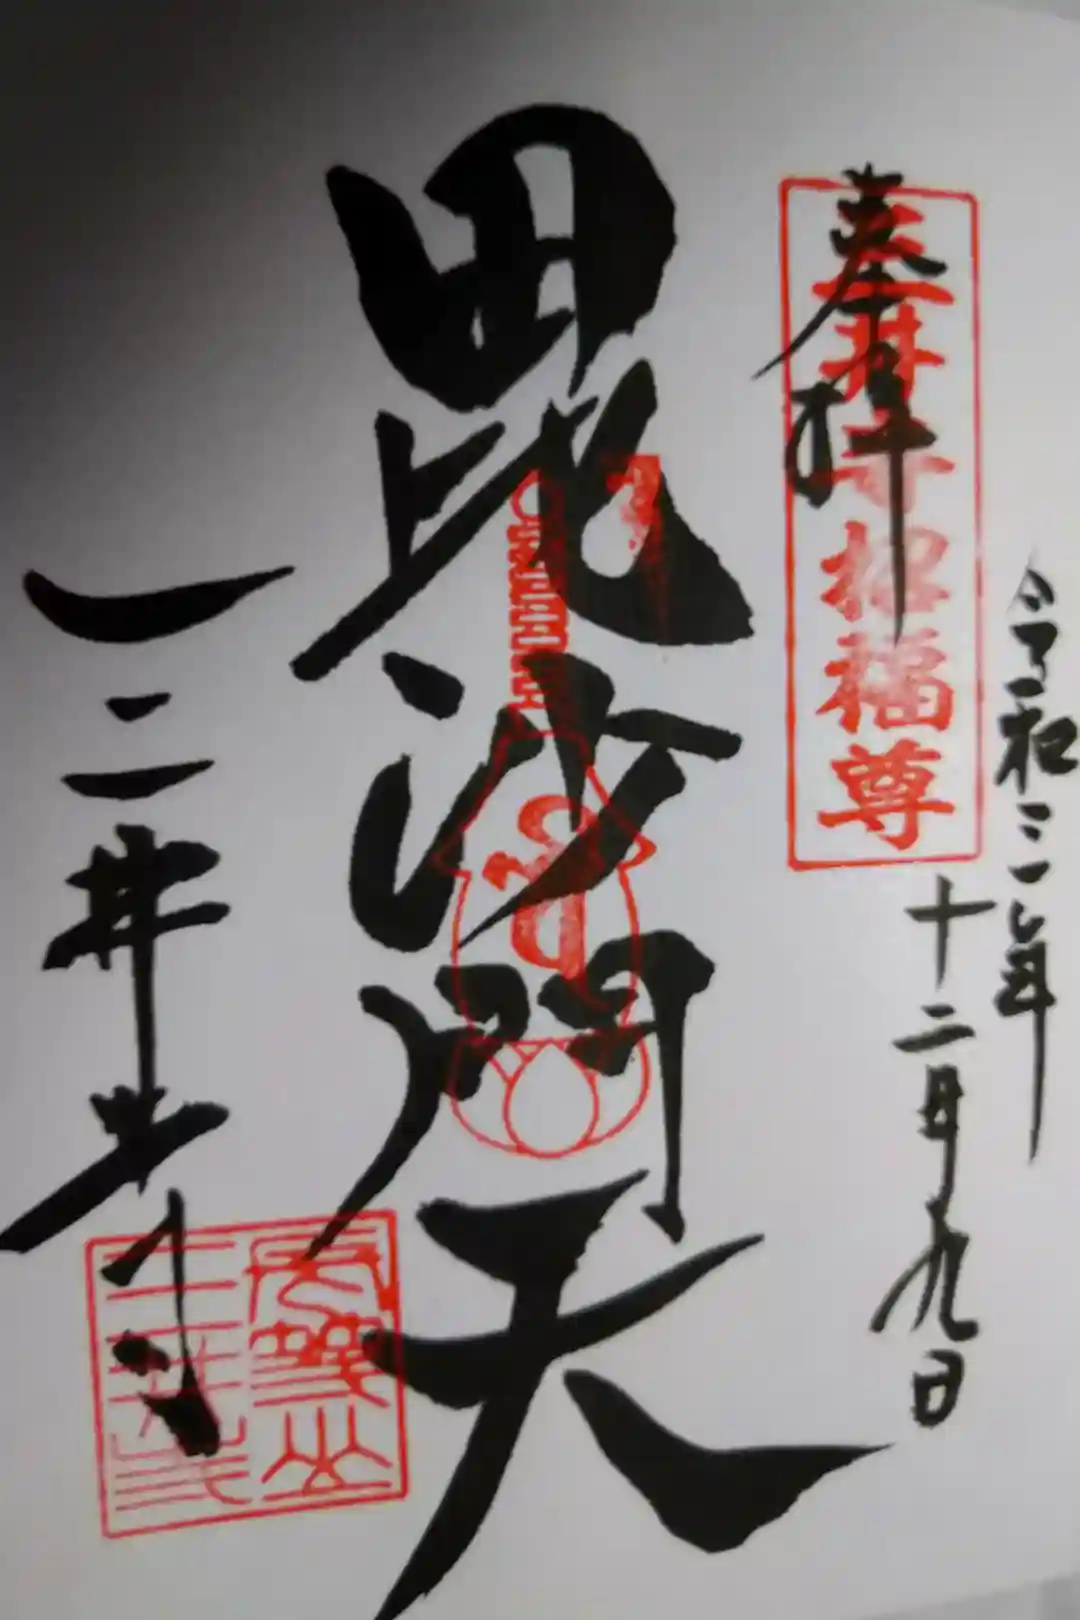 令和三年
十二月九日
奉拝
三井寺招福尊
毘沙門天
三井寺